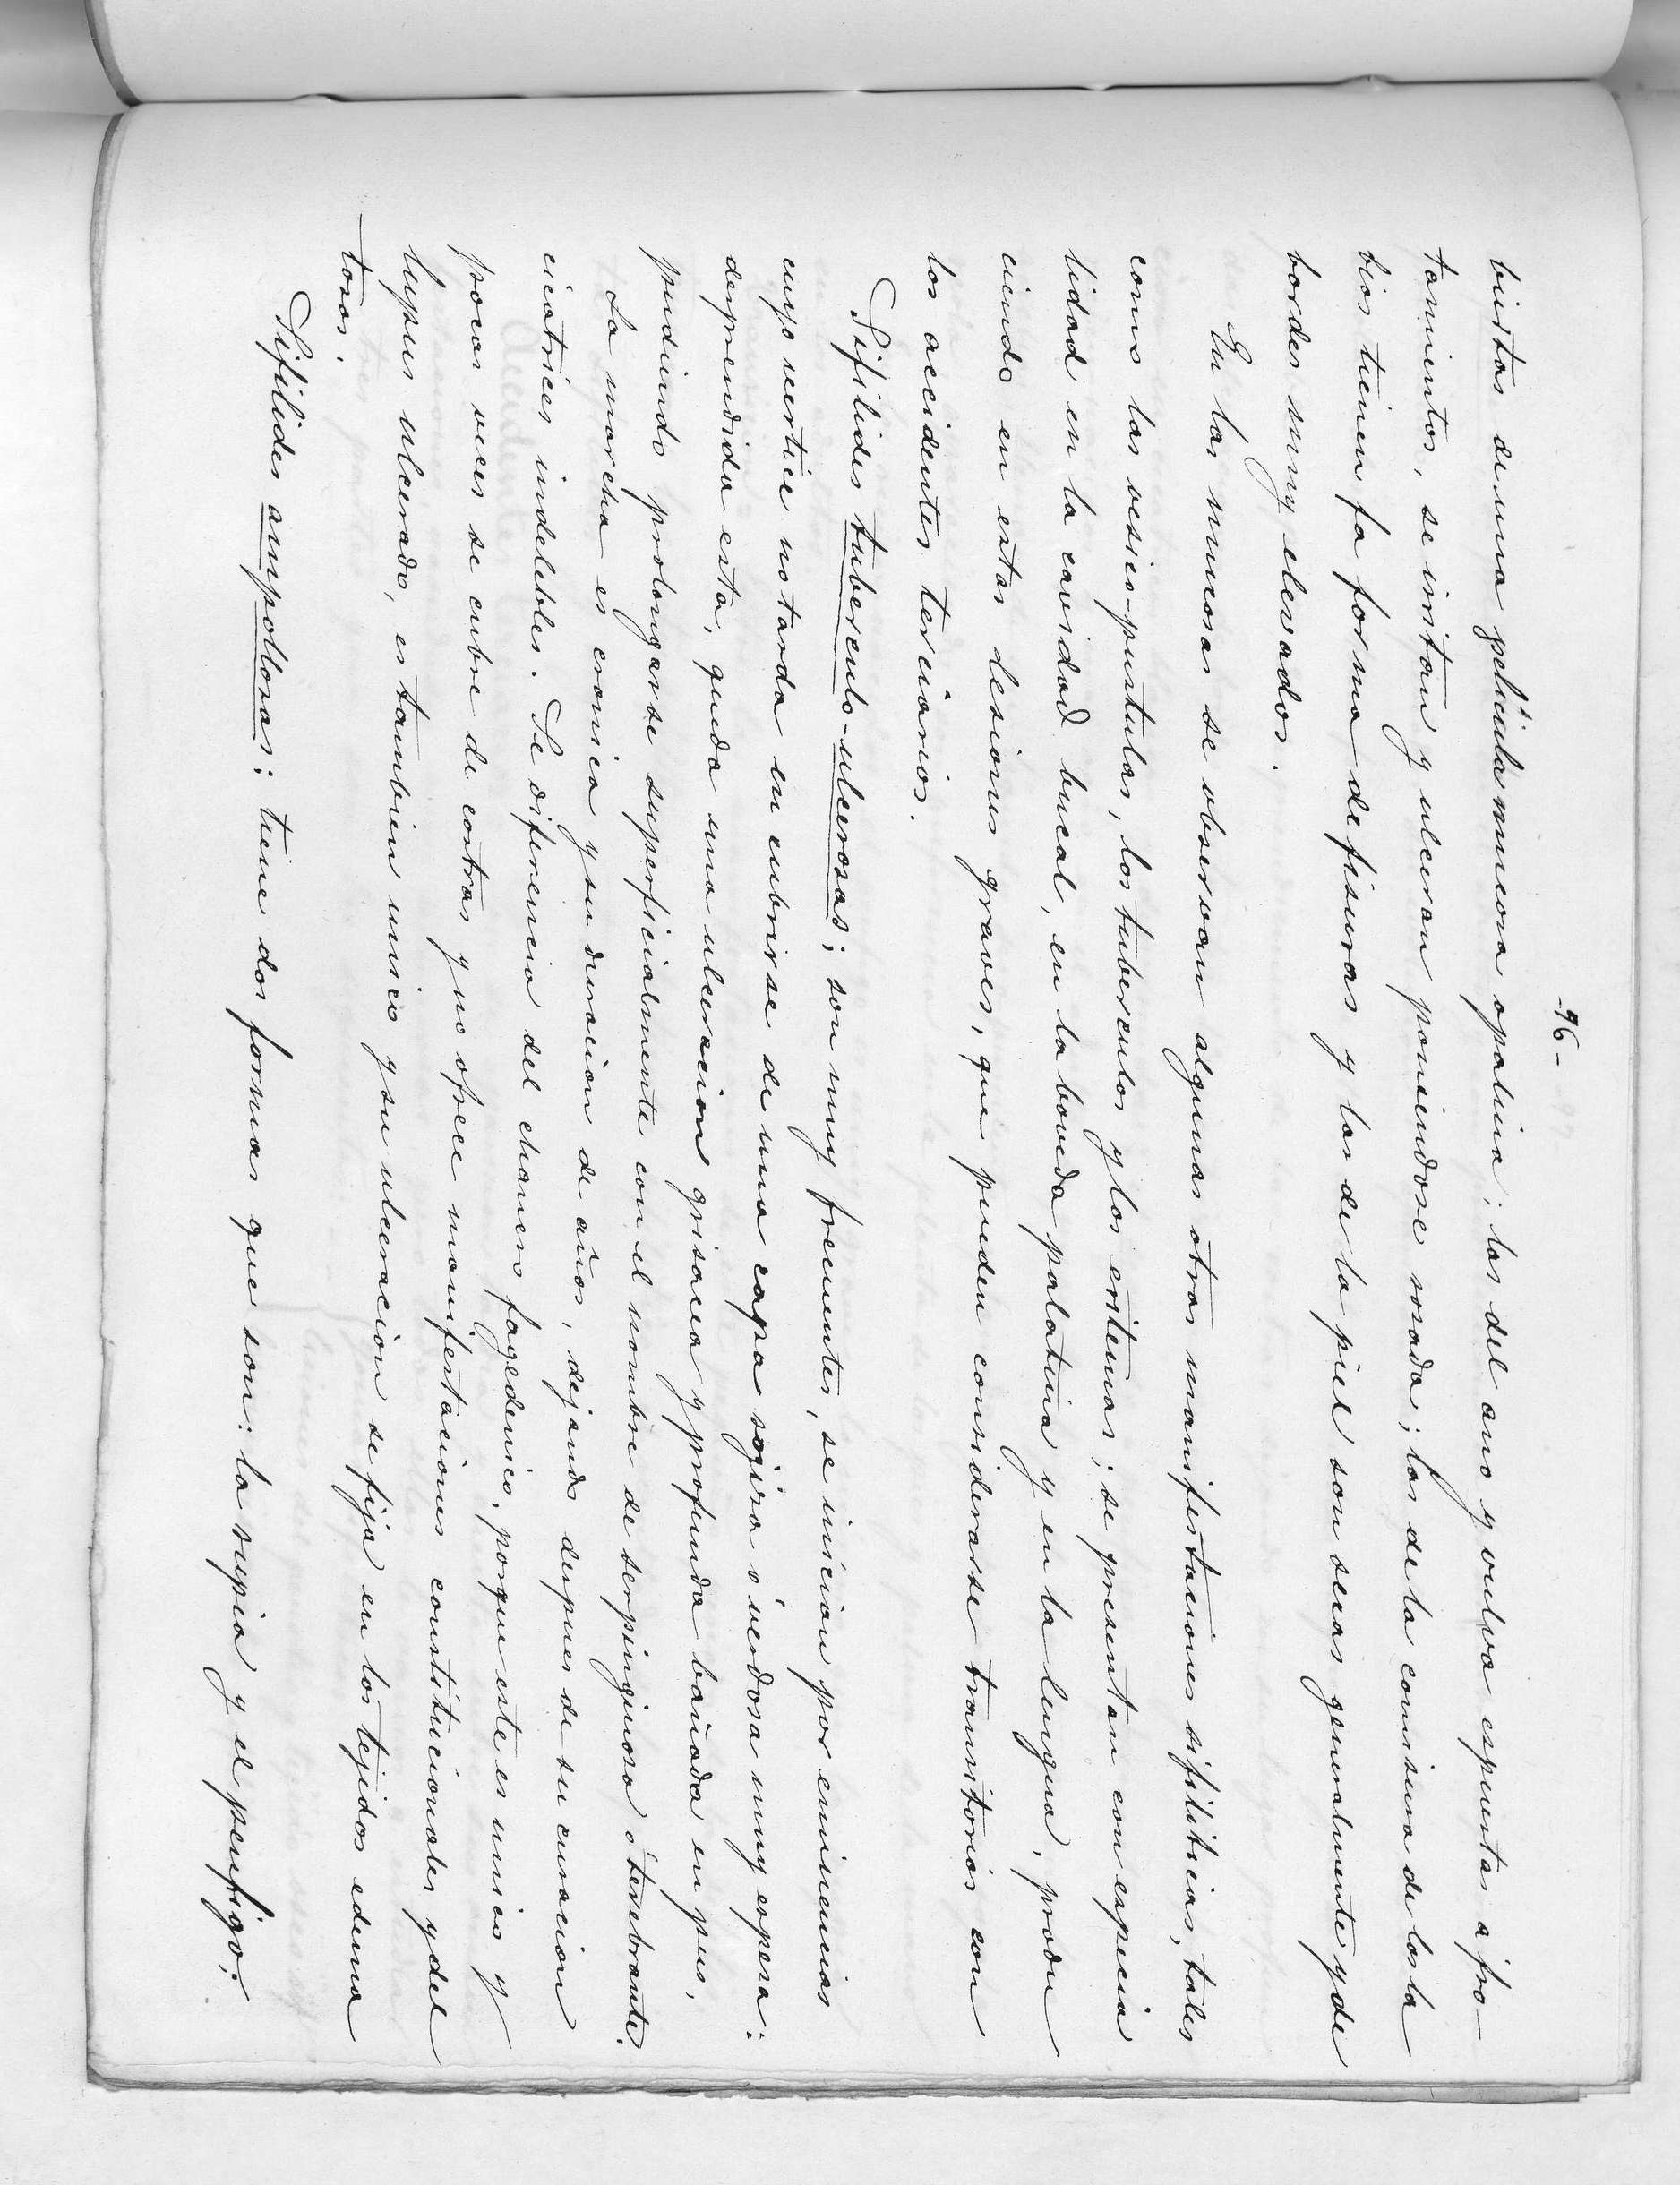 -96-
biertas de una pelicula mucosa opalina; las del ano y vulva espuestas a fro-
tamientos, se irritan y ulceran poniendose rosada; las de la comisura de los la
bios tienen la forma de fisuras y las de la piel son secas generalmente y de
bordes muy elevados.
En las mucosas se observan algunas otras manifestaciones sifiliticas, tales
como las vesico-pustulas, los tuberculos y los eritemas; se presentan con especia
lidad en la cavidad bucal, en la boveda palatina y en la lengua, produ
ciendo en estas lesiones graves, que pueden considerarse transitorios con
los accidentes terciarios.
Sifilides tuberculo-ulcerosas; son muy frecuentes, se inician por eminencias
cuyo vertice no tarda en cubrirse de una capa rojiza ó verdosa muy espesa:
desprendida esta, queda una ulceracion grisacea y profunda bañada en pus,
pudiendo prolongarse superficialmente con el nombre de serpinginosa ó terebrante.
La marcha es cronica y su duracion de años, dejando despues de su curacion
cicatrices indelebles. Se diferencia del chancro fagedenico, porque este es unico y
pocas veces se cubre de costras y no ofrece manifestaciones constitucionales y del
lupus ulcerado, es tambien unico y su ulceracion se fija en los tejidos edema
tosos.
Sifilides ampollosas; tiene dos formas que son: la rupia y el penfigo;